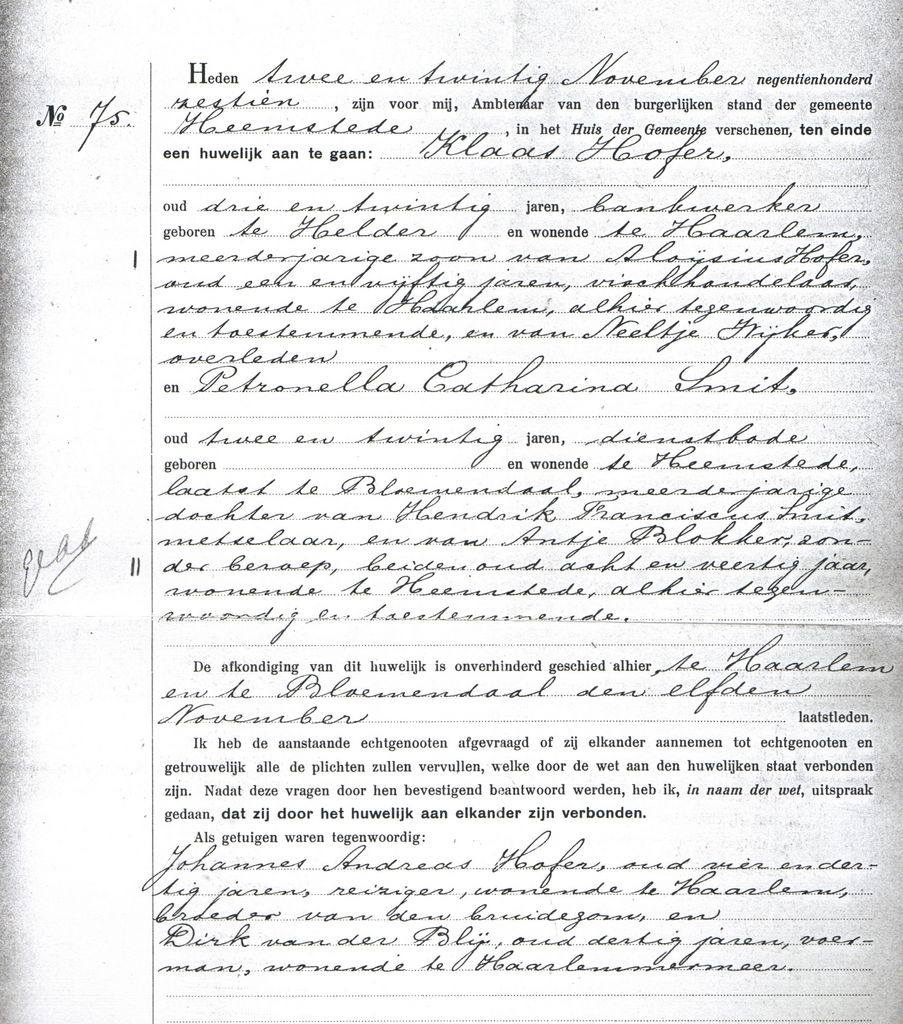 Heden twee en twintig November negentienhonderd
zestien , zijn voor mij, Ambtenaar van den burgerlijken stand der gemeente
No 75.
Heemstede , in het Huis der Gemeente verschenen, ten einde
een huwelijk aan te gaan: Klaas Hofer,
oud drie en twintig jaren, bankwerker
geboren te Helder en wonende te Haarlem,
I meerderjarige zoon van Aloÿsius Hofer,
oud een en vijftig jaren, vischhandelaar,
wonende te Haarlem, alhier tegenwoordig
en toestemmende, en van Neeltje Wijker,
overleden
en Petronella Catharina Smit,
oud twee en twintig jaren, dienstbode
geboren en wonende te Heemstede,
laatst te Bloemendaal, meerderjarige
dochter van Hendrik Franciscus Smit,
metselaar, en van Antje Blokker, zon-
II der beroep, beiden oud acht en veertig jaar,
wonende te Heemstede, alhier tegen-
woordig en toestemmende.
De afkondiging van dit huwelijk is onverhinderd geschied alhier, te Haarlem
en te Bloemendaal den elfden
November laatstleden.
Ik heb de aanstaande echtgenooten afgevraagd of zij elkander aannemen tot echtgenooten en
getrouwelijk alle de plichten zullen vervullen, welke door de wet aan den huwelijken staat verbonden
zijn. Nadat deze vragen door hen bevestigend beantwoord werden, heb ik, in naam der wet, uitspraak
gedaan, dat zij door het huwelijk aan elkander zijn verbonden.
Als getuigen waren tegenwoordig:
Johannes Andreas Hofer, oud vier en der-
tig jaren, reiziger, wonende te Haarlem,
broeder van den bruidegom, en
Dirk van der Blij, oud dertig jaren, voer-
man, wonende te Haarlemmermeer.